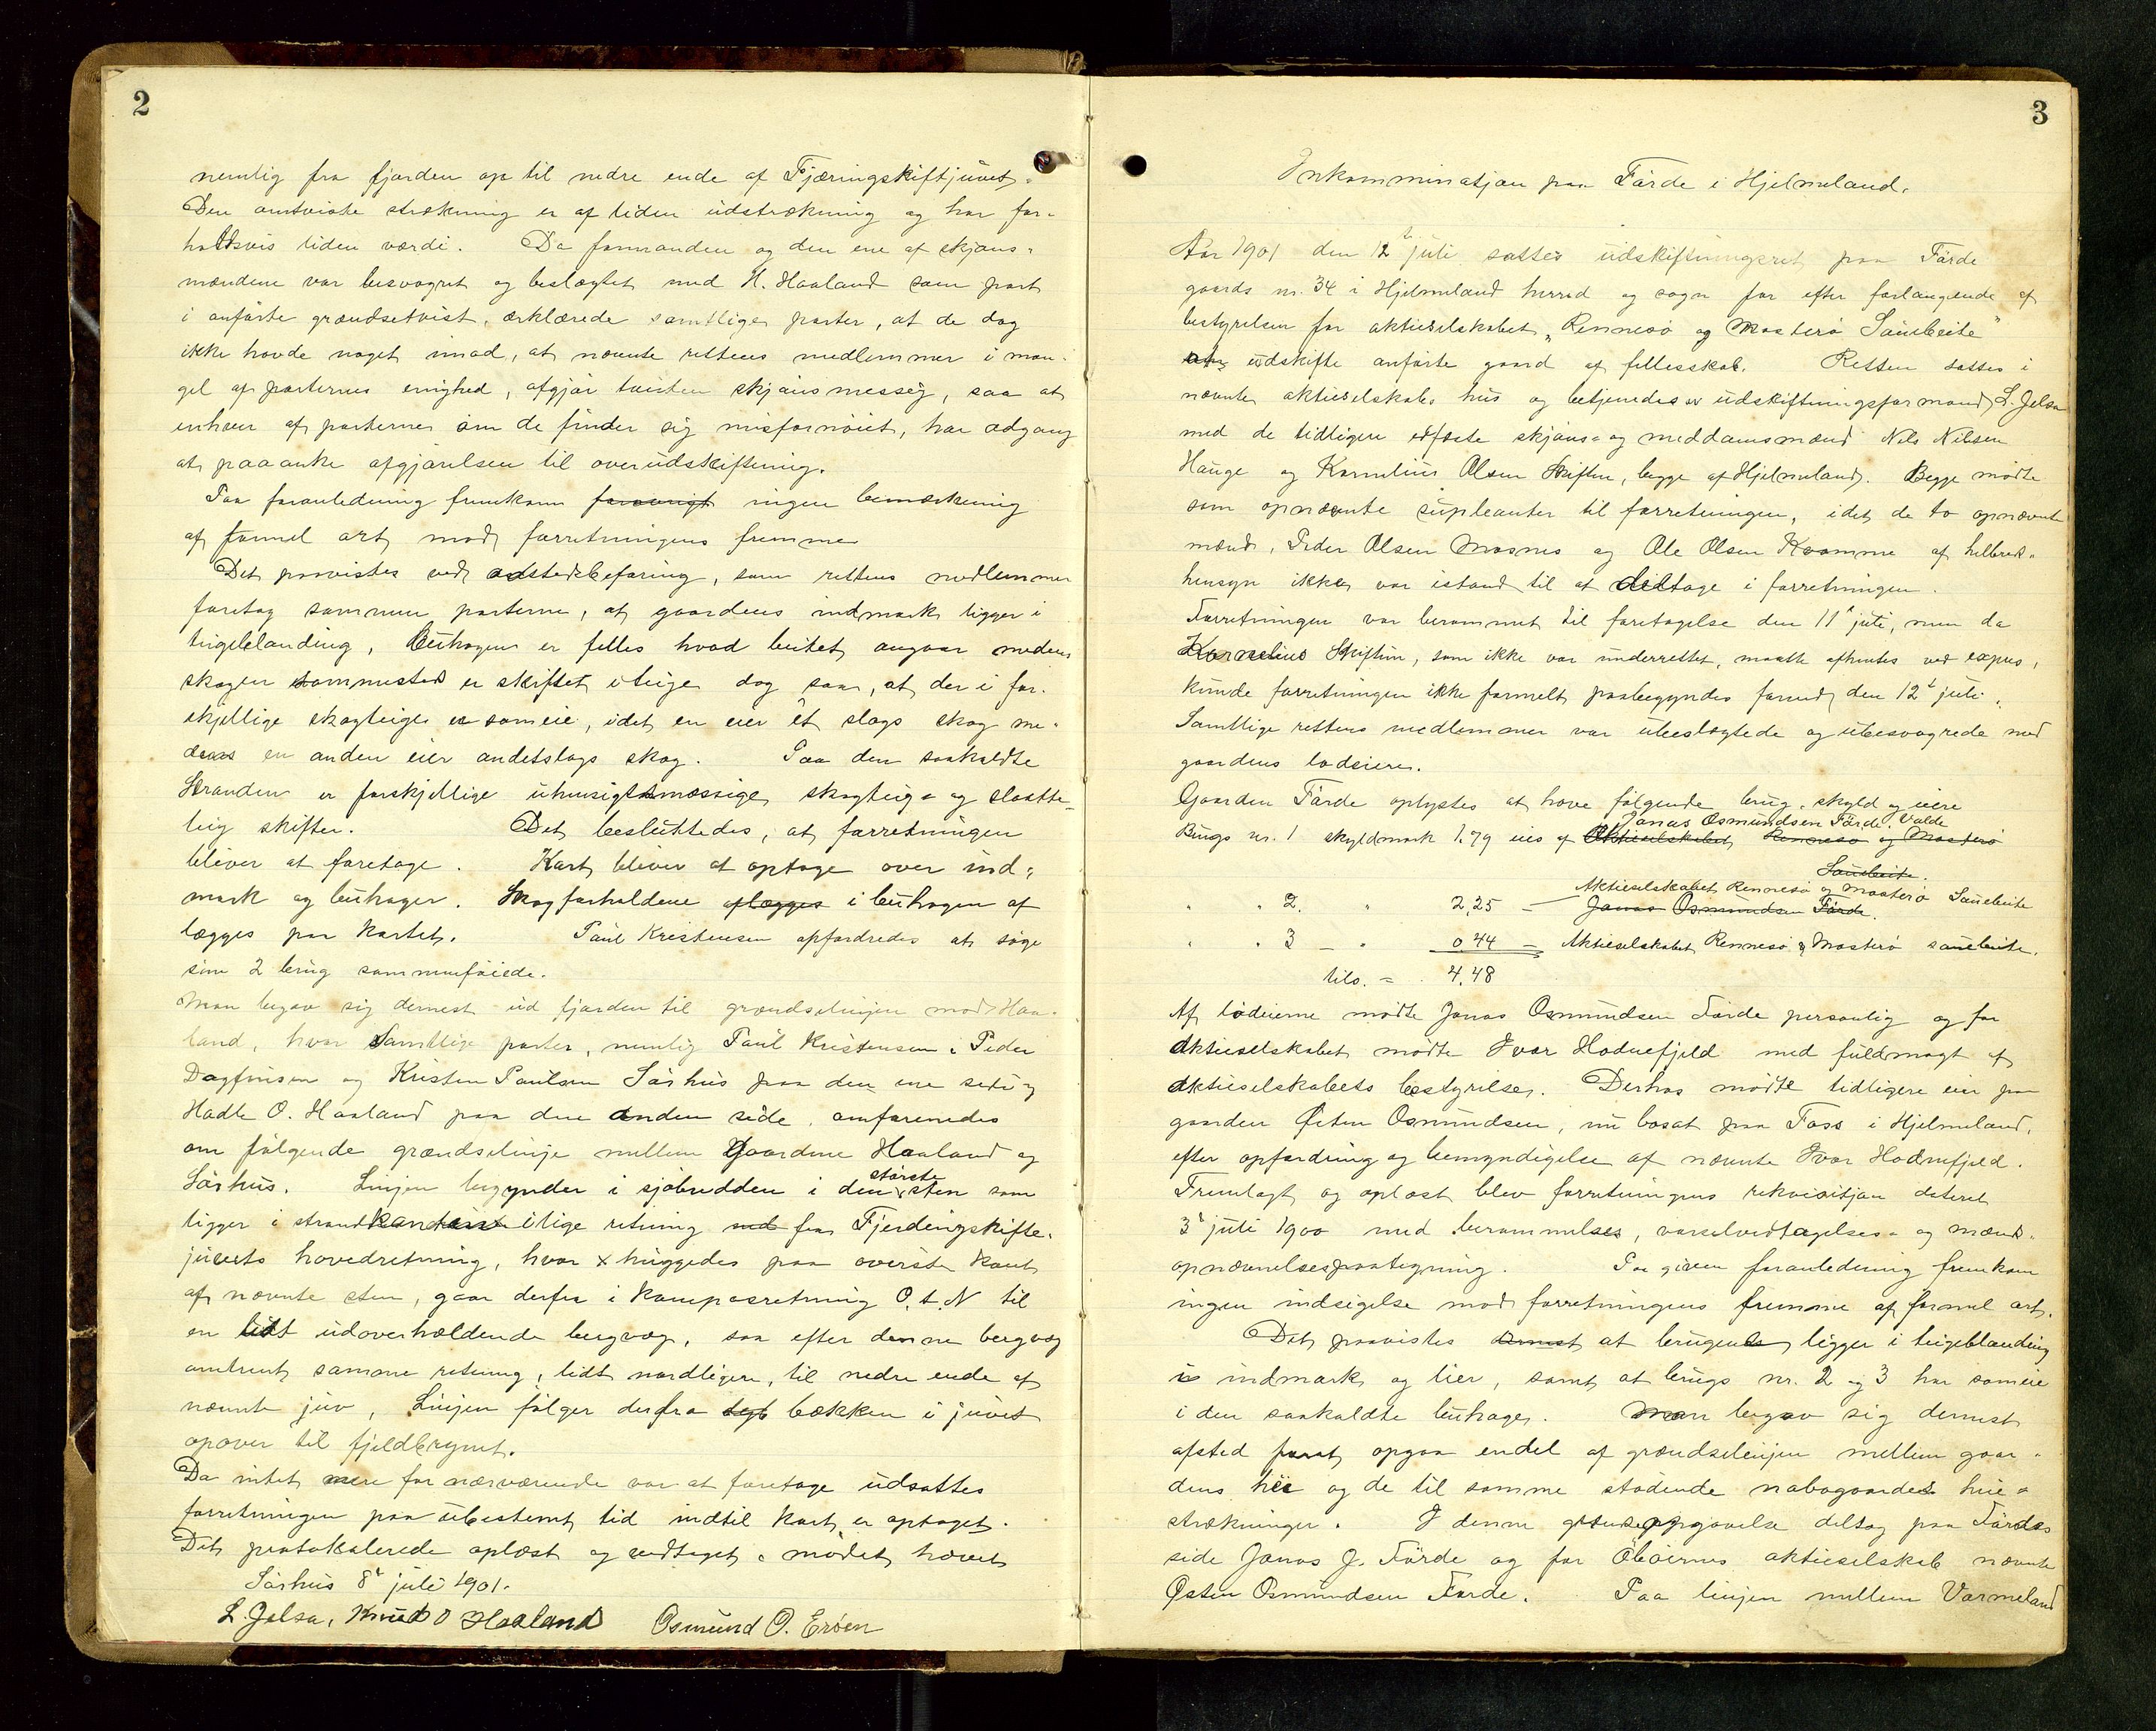 2
nemlig fra fjorden op til nedre ende af Fjæringskiftjuvet.
Den omtviste strækning er af liden udstrækning og har for-
holdsvis liden værdi. Da formanden og den ene af skjøns-
mændene var besvogret og beslægtet med H. Haaland som part
i anførte grændsetvist, erklærede samtlige parter, at de dog
ikke havde noget imod, at nævnte rettens medlemmer i man-
gel af parternes enighed, afgjør tvisten skjønsmessig, saa at
enhver af parterne om de finder sig misfornøiet, har adgang
at paaanke afgjørelsen til overudskiftning.
Paa foranledning fremkom forøvrigt ingen bemærkning
af formel art mod forretningens fremme
Det paavistes ved aastedsbefaring, som rettens medlemmer
foretog sammen parterne, at gaardens indmark ligger i
teigblanding, Beuhagen er felles hvad beitet angaar medens
skogen sammesteds er skiftet i teige dog saa, at der i for-
skjellige skogteiger er sameie, idet en eier ét slags skog me-
dens en anden eier andetslags skog. Paa den saakaldte
Stranden er forskjellige uhensigtsmæssige skogteig- og slaatte-
teig skifter. Det besluttedes, at forretningen
bliver at foretage. Kart bliver at optage over ind-
mark og beuhager. Skogforholdene aflægges i beuhagen af
lægges paa kartet. Paul Kristensen opfordredes at søge
sine 2 brug sammenføiede.
Man begav sig dernest ud fjorden til grændselinjen mod Haa-
land, hvor Samtlige parter, nemlig Paul Kristensen, Peder
Dagfinsen og Kristen Paulsen Sørhus paa den ene side og
Hadle O. Haaland paa den anden side, omforenedes
om følgende grændselinje mellem Gaardene Haaland og
Sørhus. Linjen begynder i sjøbredden i den største sten som
ligger i strandkanten i lige retning med fra Fjerdingskifte-
juvets hovedretning, hvor x huggedes paa øverste kant
af nævnte sten, gaar derfra i kompasretning O. t. N til
en lidt udoverhældende bergvæg, saa efter denne bergvæg
omtrent samme retning, lidt nordligere, til nedre ende af
nævnte juv, Linjen følger derfra bækken i juvet
opover til fjeldbrynet.
Da intet mere for nærværende var at foretage udsattes
forretningen paa ubestemt tid indtil kart er optaget.
Det protokolerede oplæst og vedtaget. mødet hævet
Sørhus 8de juli 1901.
L. Jelsa, Knud O Haaland Osmund O. Erøen
3
Inkamminatjon paa Førde i Hjelmeland.
Aar 1901 den 12te juli sattes udskiftningsret paa Førde
gaards nr. 34 i Hjelmeland herred og sogn for efter forlangende af
bestyrelsen for aktieselskabet "Rennesø og Mosterø Sauebeite"
at udskifte anførte gaard af fellesskab. Retten sattes i
nævnte aktieselskabs hus og betjenedes av udskiftningsformand L. Jelsa
med de tidligere edfæste skjøns- og meddomsmænd Nils Nilsen
Hauge og Kornelius Olsen Skiftun, begge af Hjelmeland. Begge mødte
som opnævnte supleanter til forretningen, idet de to opnævnte
mænd, Peder Olsen Mosnes og Ole Olsen Kvamme af helbreds-
hensyn ikke var istand til at deltage i forretningen.
Forretningen var berammet til foretagelse den 11te juli, men da
Kornelius Skiftun, som ikke var underrettet, maatte afhentes ved expres,
kunde forretningen ikke formelt paabegyndes førend den 12te juli.
Samtlige rettens medlemmer var ubeslægtede og ubesvogrede med
gaardens lodeiere.
Gaarden Førde oplystes at have følgende brug, skyld og eiere
Jonas Osmundsen Førde. Valde
Brugs nr. 1 skyldmark 1.79 eies af Aktieselskabet Rennesø og Mosterø
Sauebeite.
Aktieselskabet Rennesø og Mosterø Sauebeite
" " 2. " 2,25 — Jonas Osmundsen Førde.
" " 3 — " 0 44 — Aktieselskabet Rennesø & Mosterø sauebeite.
tils. = 4,48
Af lodeierne mødte Jonas Osmundsen Førde personlig og for
Aktieselskabet mødte Ivar Hodnefjeld med fuldmagt af
Aktieselskabets bestyrelse. Derhos mødte tidligere eier paa
gaarden Østen Osmundsen, nu bosat paa Foss i Hjelmeland,
efter opfordring og bemyndigelse af nævnte Ivar Hodnefjeld.
Fremlagt og oplæst blev forretningens rekvisitjon dateret
3de juli 1900 med berammelses, varselvedtagelses- og mænds-
opnævnelsespaategning. Paa given foranledning fremkom
ingen indsigelse mod forretningens fremme af formel art.
Det paavistes dernest at brugene ligger i teigblanding
i indmark og lier, samt at brugs nr. 2 og 3 har sameie
i den saakaldte beuhage. Man begav sig dernest
afsted for at opgaa endel af grændselinjen mellem gaar-
dens hei og de til samme stødende nabogaardes heie-
strækninger. I denne grændseopgaaelse deltog paa Førdes
side Jonas J. Førde og for Øboernes aktieselskab nævnte
Østen Osmundsen Førde. Paa linjen mellem Vormeland